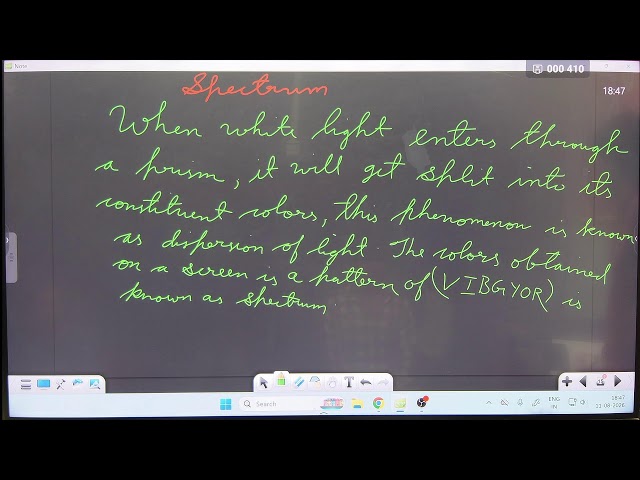 Note
000 410
18:47
Spectrum
When white light enters through
a prism, it will get split into its
constituent colors, this phenomenon is known
as dispersion of light. The colors obtained
on a screen is a pattern of (VIBGYOR) is
known as spectrum.
Search
ENG
IN
18:47
11-08-2026